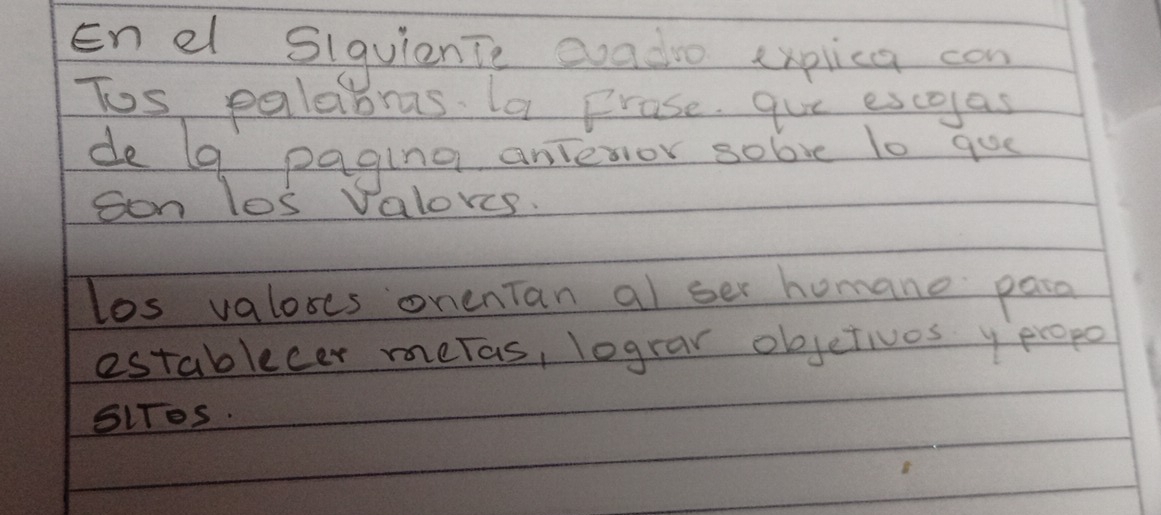 En el siguiente cuadro explica con
Tus palabras. la Frase. que escojas
de la pagina anterior sobre lo que
son los valores.
los valores orientan al ser humano para
establecer metas, lograr objetivos y propo
sitos.